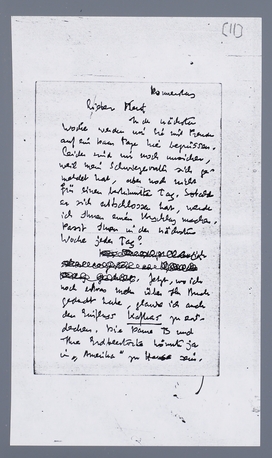 [11]
Donnerstag
Lieber
In der nächsten
Woche werden wir Sie mit Freuden
auf ein paar Tage hier begrüssen.
Leider sind wir noch unsicher,
weil mein Schwiegersohn sich ge-
meldet hat, aber noch nicht
für einen bestimmten Tag. Sobald
er sich entschlossen hat, werde
ich Ihnen einen Vorschlag machen.
Passt Ihnen in der nächsten
Woche jeder Tag?
Jetzt, wo ich
noch etwas mehr über Ihr Buch
gedacht habe, glaube ich auch
den Einfluss Kafkas zu ent-
decken. Die Dame B und
Ihre könnte ja
in „Amerika" zu Hause sein.